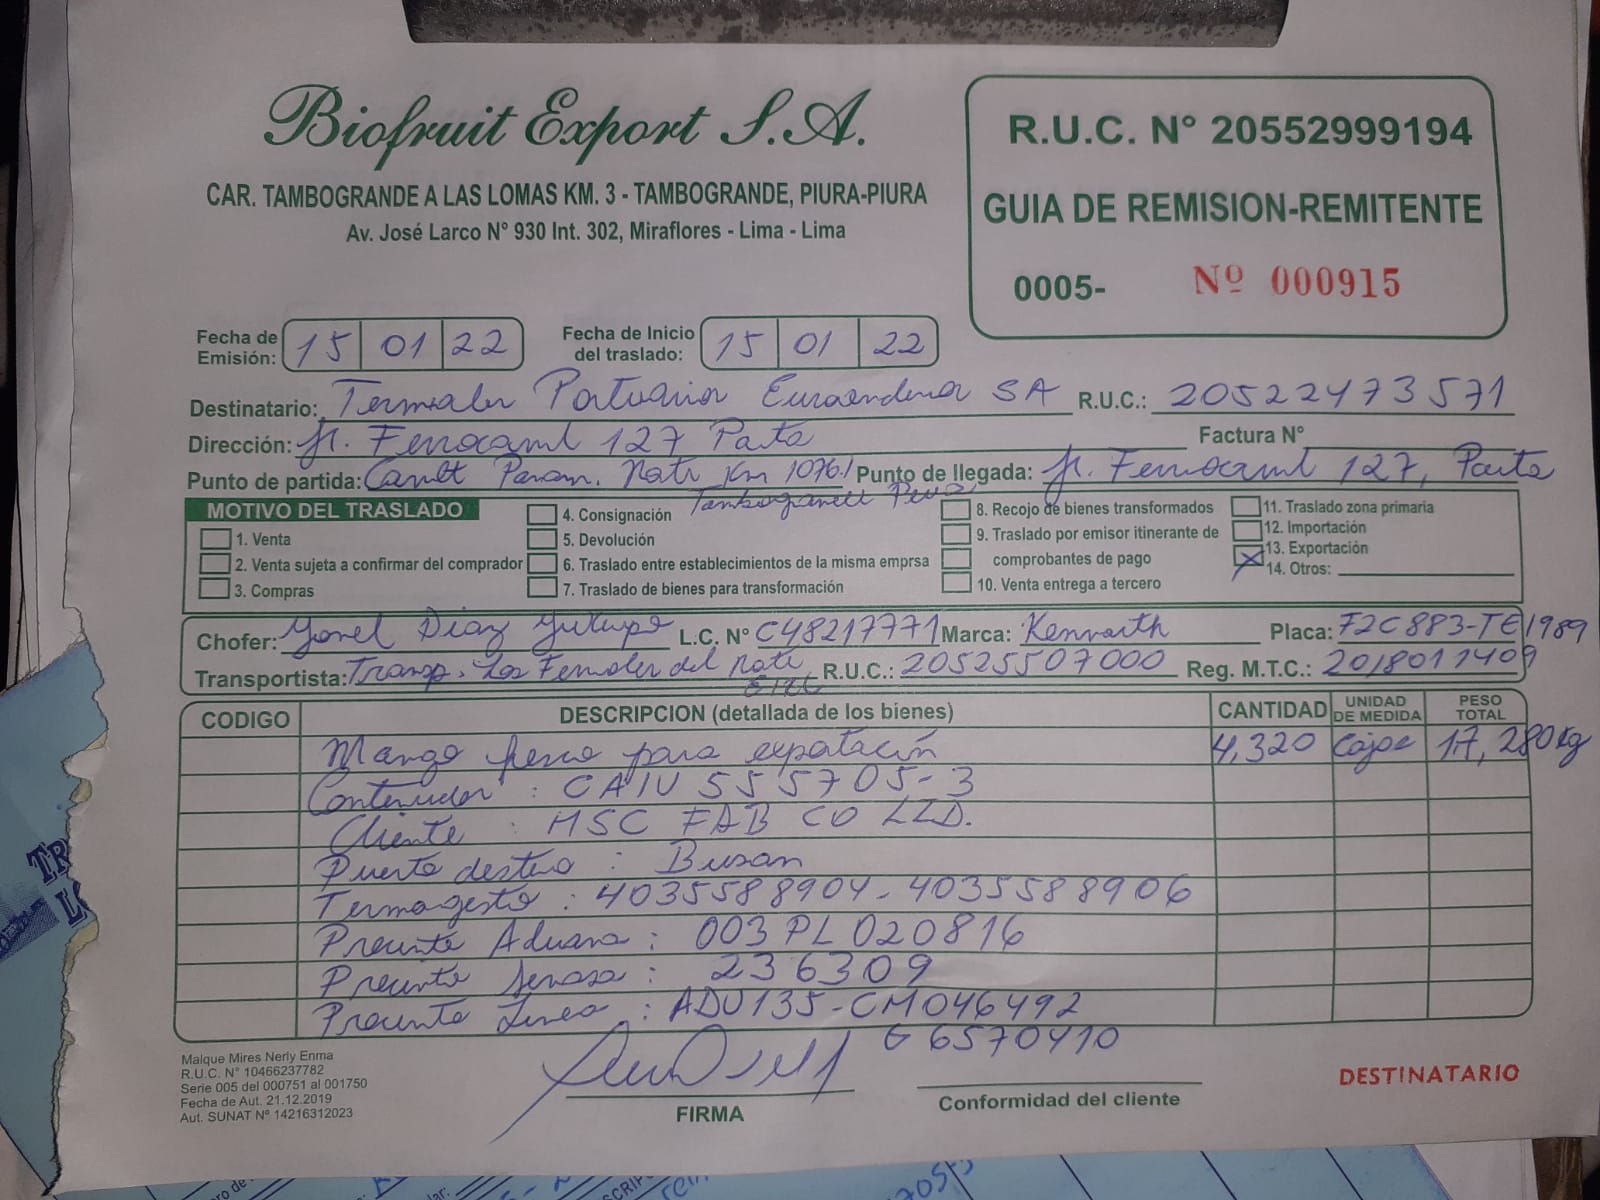 Biofruit Export S.A.
CAR. TAMBOGRANDE A LAS LOMAS KM. 3 - TAMBOGRANDE, PIURA-PIURA
Av. José Larco N° 930 Int. 302, Miraflores - Lima - Lima
R.U.C. N° 20552999194
GUIA DE REMISION-REMITENTE
0005- Nº 000915
Fecha de Emisión: 15 01 22 Fecha de Inicio del traslado: 15 01 22
Destinatario: Euroandina SA R.U.C.: 20522473571
Dirección: Jr. 127 Paita Factura N°
Punto de partida: Km 1076.1 Punto de llegada: Jr. 127, Paita
MOTIVO DEL TRASLADO
1. Venta
2. Venta sujeta a confirmar del comprador
3. Compras
4. Consignación
5. Devolución
6. Traslado entre establecimientos de la misma emprsa
7. Traslado de bienes para transformación
8. Recojo de bienes transformados
9. Traslado por emisor itinerante de
comprobantes de pago
10. Venta entrega a tercero
11. Traslado zona primaria
12. Importación
13. Exportación
14. Otros:
Chofer: Diaz L.C. N° C48217771 Marca: Kenworth Placa: F2C883-TE1989
Transportista: Transp. del R.U.C.: 20525507000 Reg. M.T.C.: 2018011409
CODIGO DESCRIPCION (detallada de los bienes) CANTIDAD UNIDAD DE MEDIDA PESO TOTAL
Mango para 4,320 Cajas 17,280 kg
Contenedor : CAIU 555705-3
Cliente : HSC FAB CO LTD.
Puerto destino : Busan
4035588904 - 4035588906
Precinto Aduana : 003PL020816
Precinto Senasa : 236309
Precinto Linea : ADU135-CM046492
G6570410
Malque Mires Nerly Enma
R.U.C. N° 10466237782
Serie 005 del 000751 al 001750
Fecha de Aut. 21.12.2019
Aut. SUNAT Nº 14216312023
FIRMA
Conformidad del cliente
DESTINATARIO